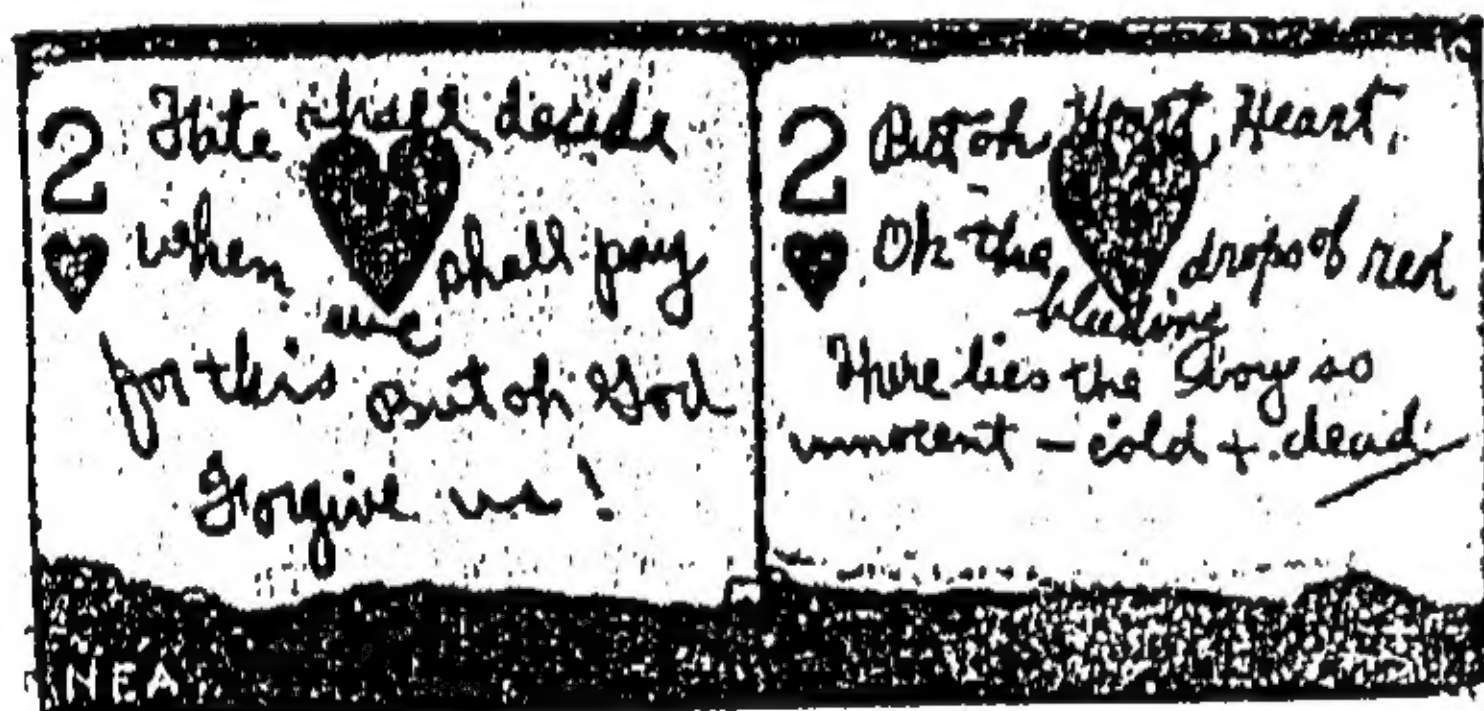 2 Fate shall decide
when we shall pay
for this But oh God
Forgive us!
2 But oh Heart, Heart,
Oh the bleeding drops of red
There lies the boy so
innocent — cold + dead
NEA